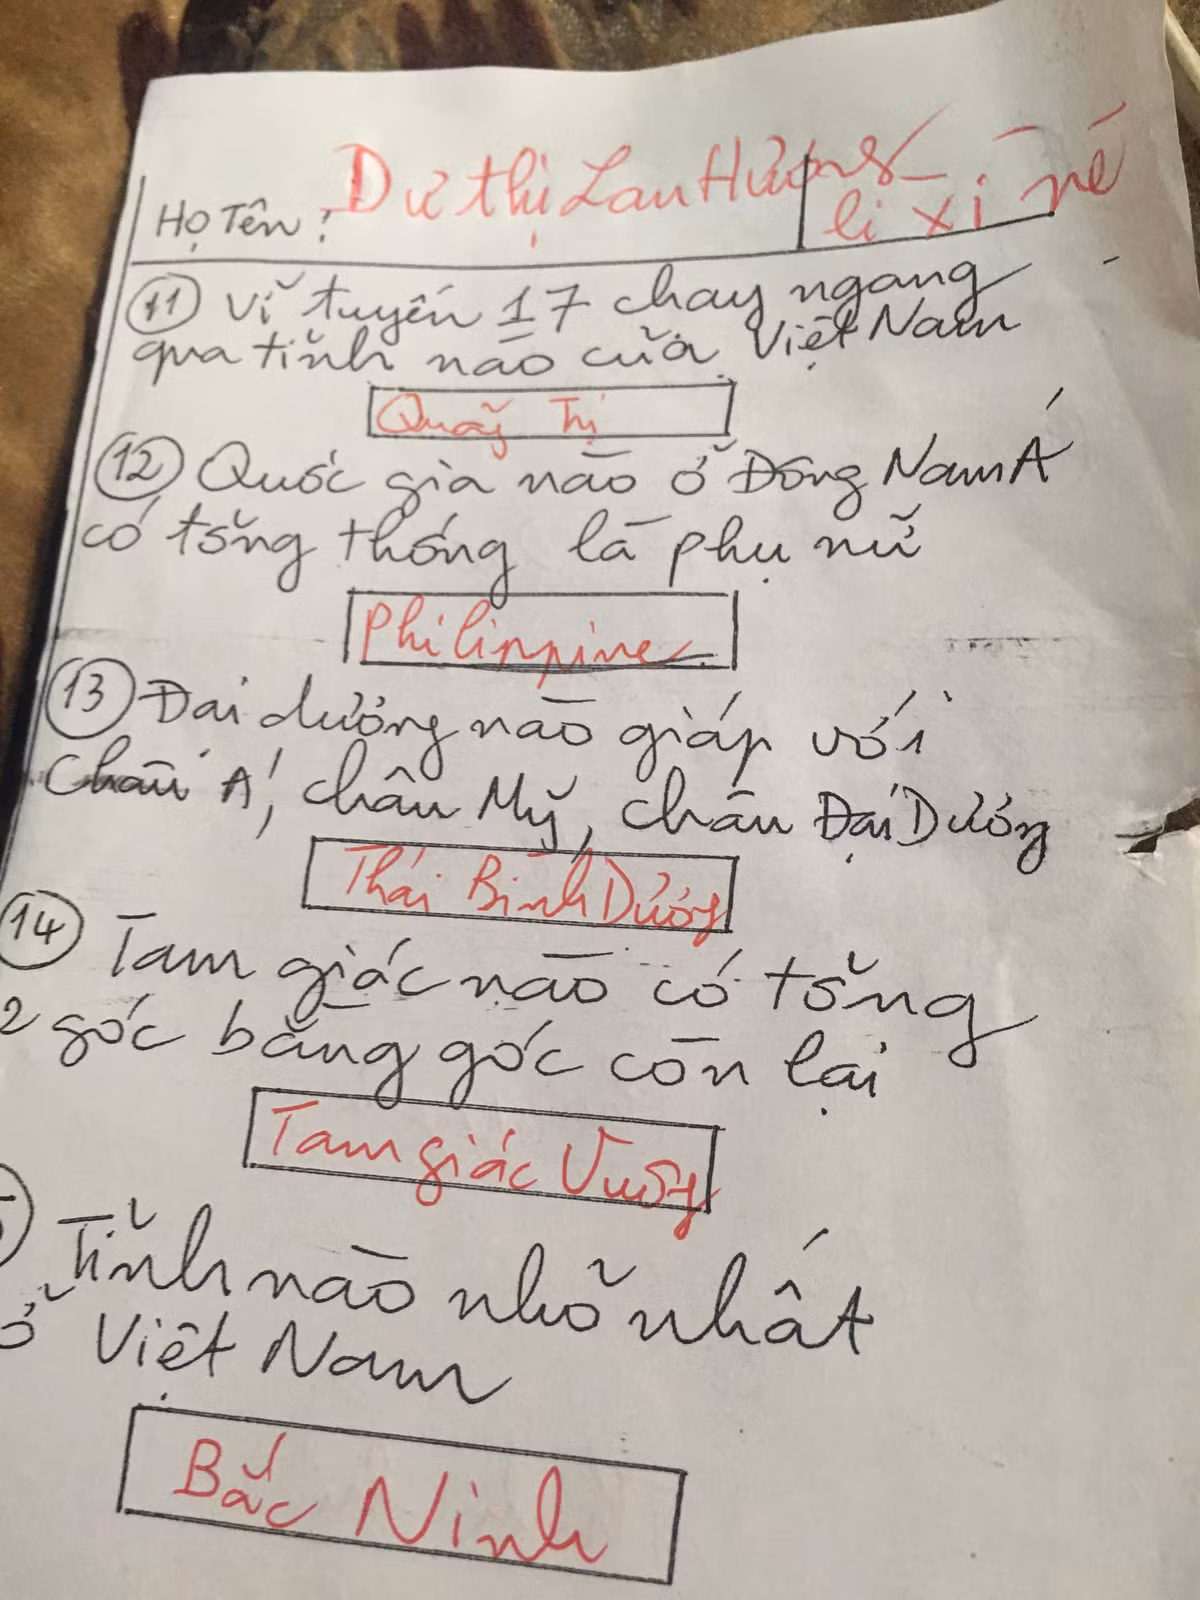 Họ Tên: Dư thị Lan Hương
lì xì né
11 Vĩ tuyến 17 chạy ngang
qua tỉnh nào của Việt Nam
Quảng Trị
12 Quốc gia nào ở Đông Nam Á
có tổng thống là phụ nữ
Philippine.
13 Đại dương nào giáp với
Châu Á, châu Mỹ, châu Đại Dương
Thái Bình Dương
14 Tam giác nào có tổng
2 góc bằng góc còn lại
Tam giác Vuông
Tỉnh nào nhỏ nhất
ở Việt Nam
Bắc Ninh